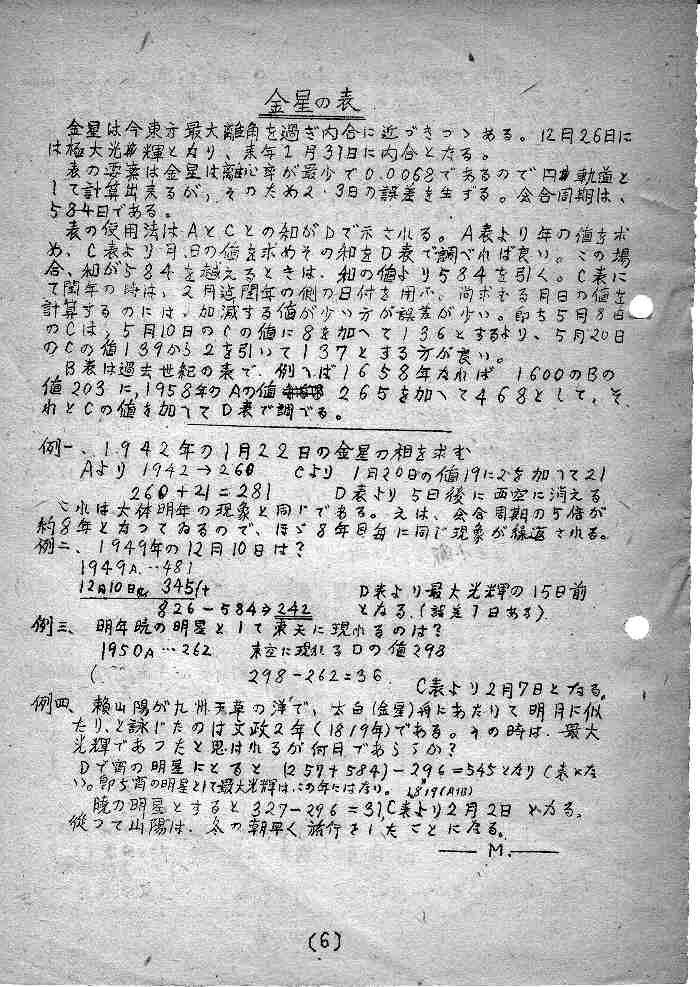 金星の表
金星は今東方最大離角を過ぎ内合に近づきつゝある。12月26日に
は極大光輝となり、来年1月31日に内合となる。
表の要素は金星は離心率が最少で0.0068であるので円軌道と
して計算出来るが、そのため2・3日の誤差を生ずる。会合周期は、
584日である。
表の使用法はAとCとの和がDで示される。A表より年の値を求
め、C表より月、日の値を求めその和をD表で調べれば良い。この場
合、和が584を越えるときは、和の値より584を引く。C表に
て閏年の時は、2月迄閏年の側の日付を用ふ、尚求むる月日の値を
計算するのには、加減する値が少い方が誤差が少い。即ち5月8日
のCは、5月10日のCの値に8を加へて136とするより、5月20日
のCの値139から2を引いて137とする方が良い。
B表は過去世紀の表で、例へば1658年なれば 1600のBの
値203に、1958年のAの値 265を加へて468として、そ
れとCの値を加へてD表で調べる。
例一、1942年の1月22日の金星の相を求む
Aより 1942→260 Cより 1月20日の値19に2を加へて21
260+21=281 D表より5日後に西空に消える
これは大体明年の現象と同じである。えは、会合周期の5倍が
約8年となつてゐるので、ほゞ8年目毎に同じ現象が繰返される。
例二、1949年の12月10日は?
1949A…481
12月10日 345 (+ D表より最大光輝の15日前
826-584→242 となる。(誤差1日ある)
例三、明年暁の明星として東天に現れるのは?
1950A…262 東空に現れるDの値298
298-262=36
C表より2月7日となる。
例四、頼山陽が九州天草の洋で、太白(金星)舟にあたりて明月に似
たり、と詠じたのは文政2年(1819年)である。その時は、最大
光輝であつたと思はれるが何月であらうか?
Dで宵の明星にとると (257+584)-296=545となり(表にな
い)。即ち宵の明星として最大光輝は、この年にはない。 1819(A+B)
暁の明星とすると 327-296=31,C表より2月2日となる。
従つて山陽は、冬の朝早く旅行をしたことになる。
M.
(6)